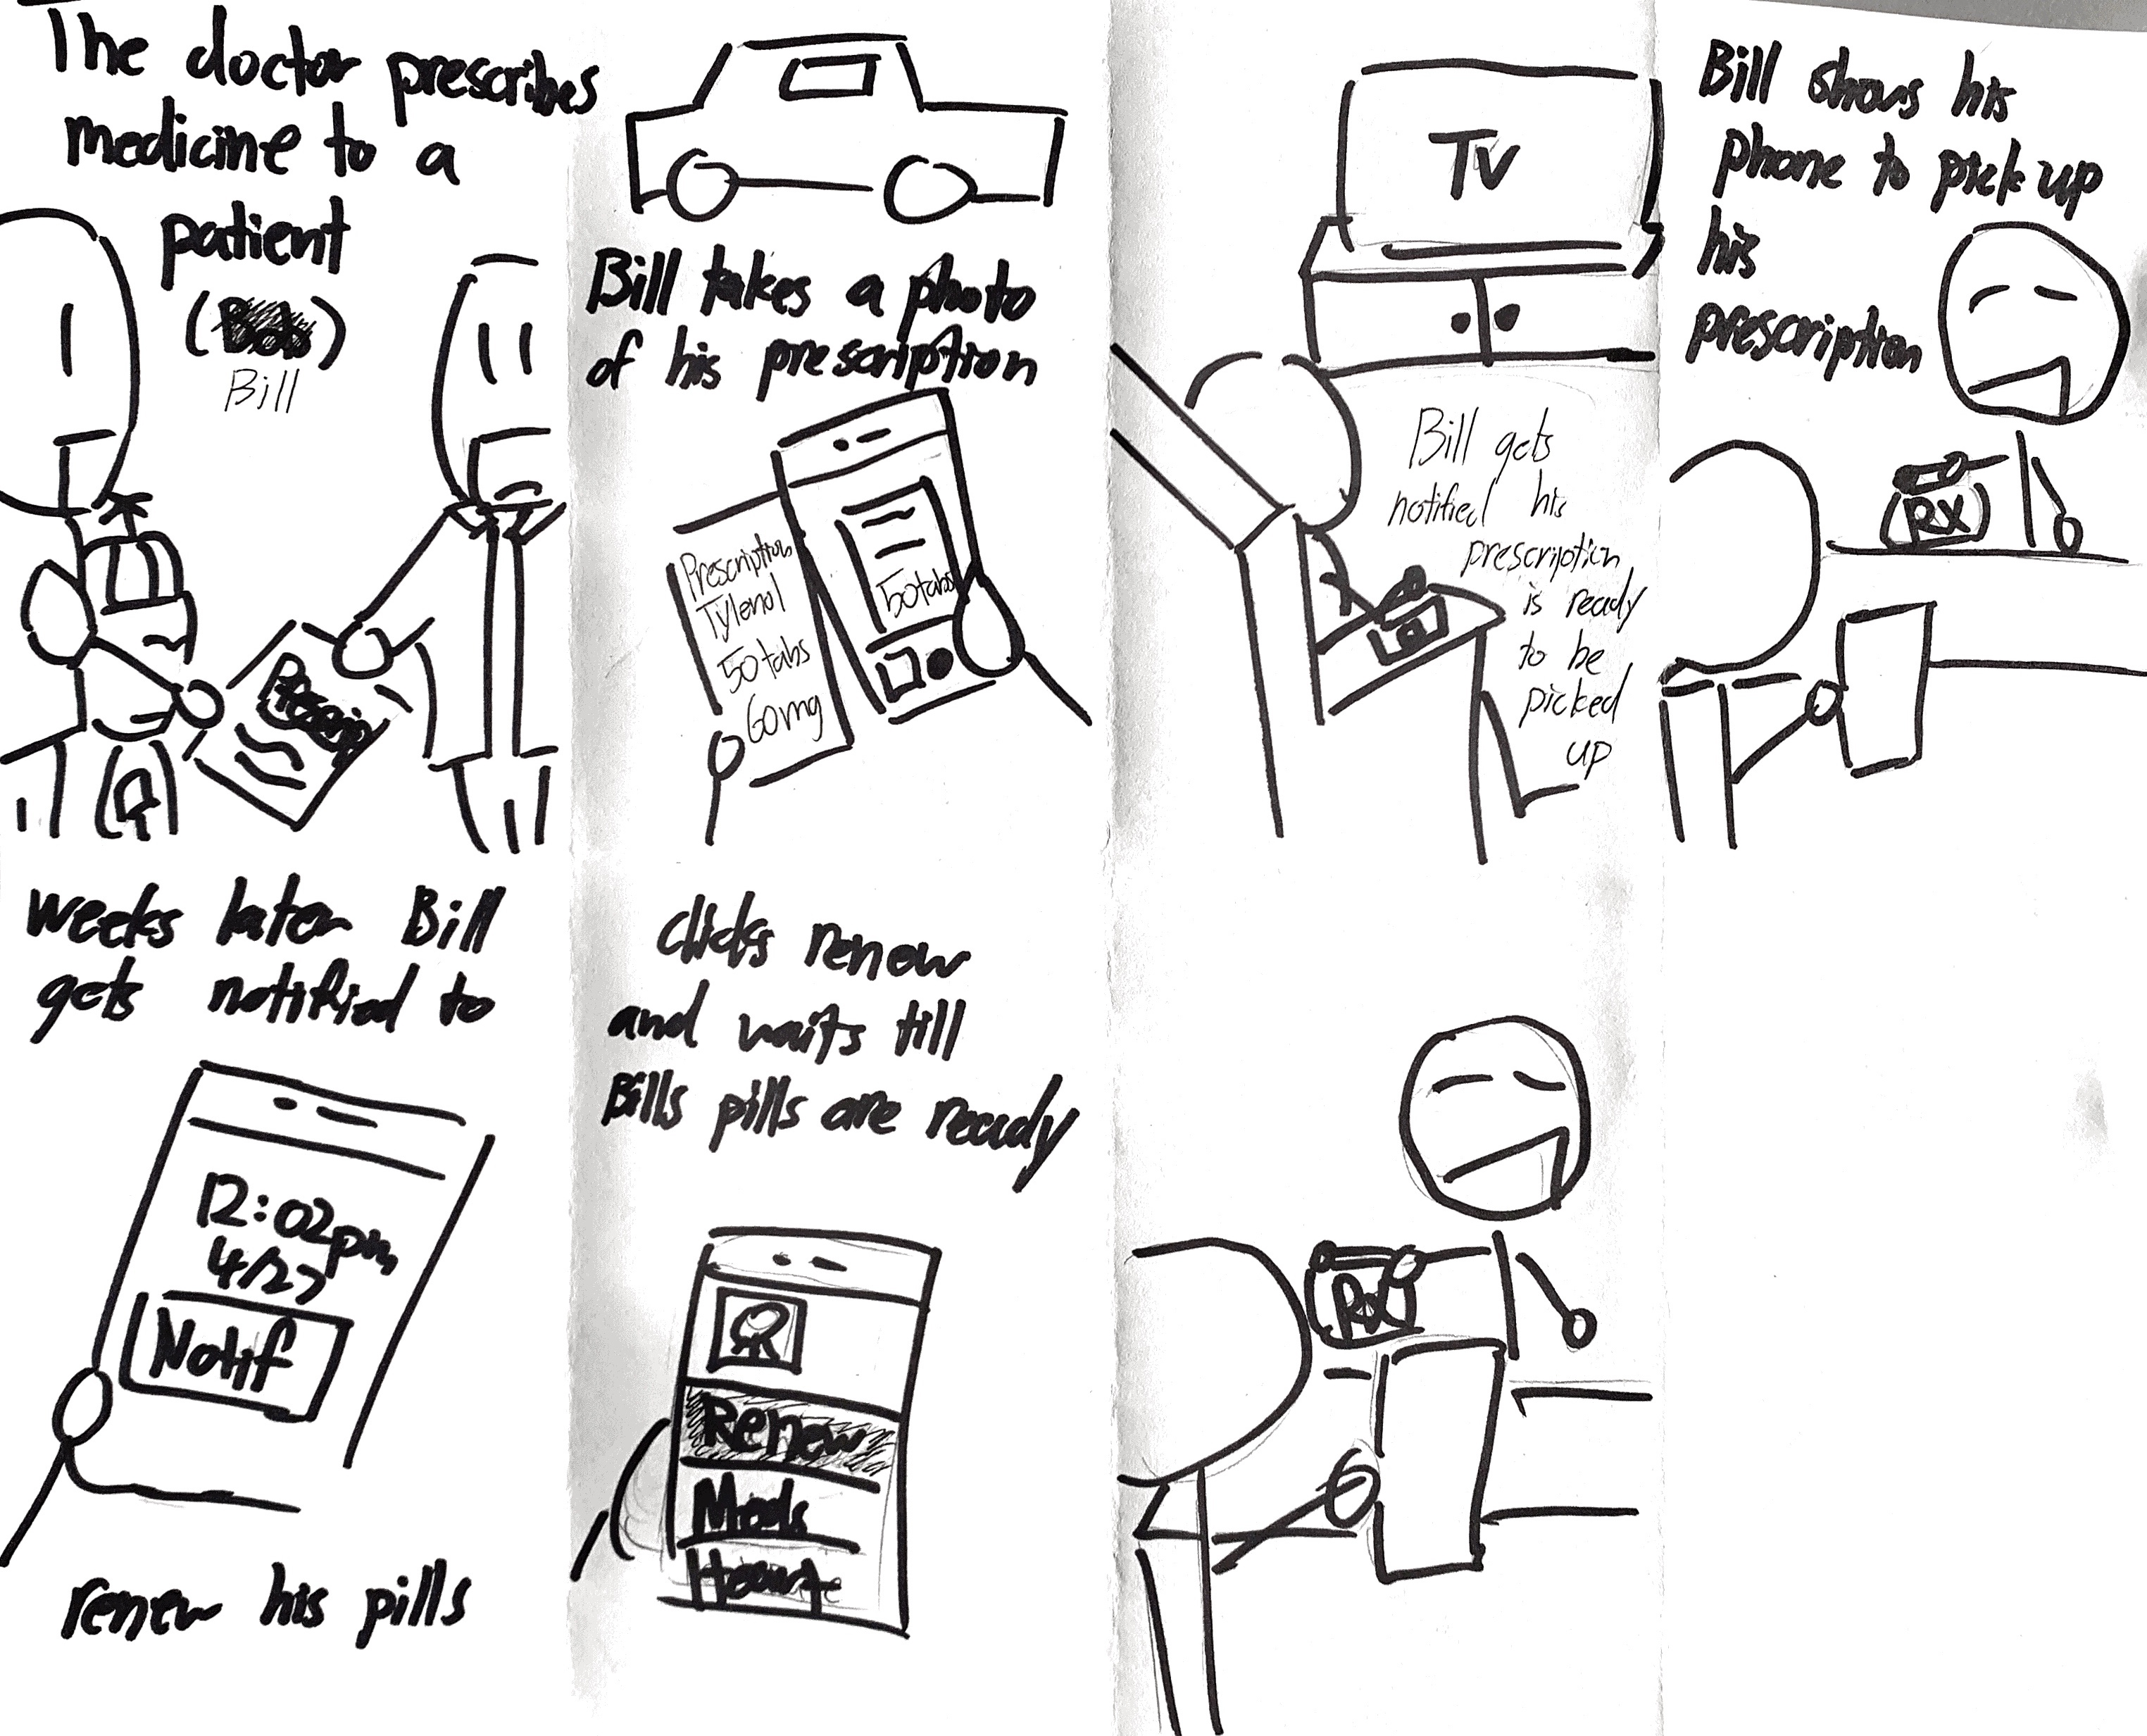 The doctor prescribes
medicine to a
patient
(Bob)
Bill
Bill takes a photo
of his prescription
Prescription
Tylenol
50 tabs
60mg
50tabs
TV
Bill gets
notified his
prescription
is ready
to be
picked
up
Bill shows his
phone to pick up
his
prescription
RX
weeks later Bill
gets notified to
12:02pm
4/27
Notif
renew his pills
clicks renew
and waits till
Bills pills are ready
Renew
Meds
Rx